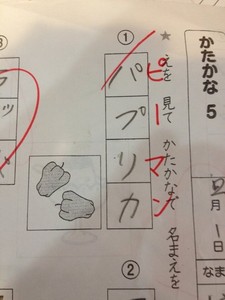 かたかな 5
月
1日
なまえ
★ えを 見て かたかなで 名まえを
①
パプリカ
ピーマン
②